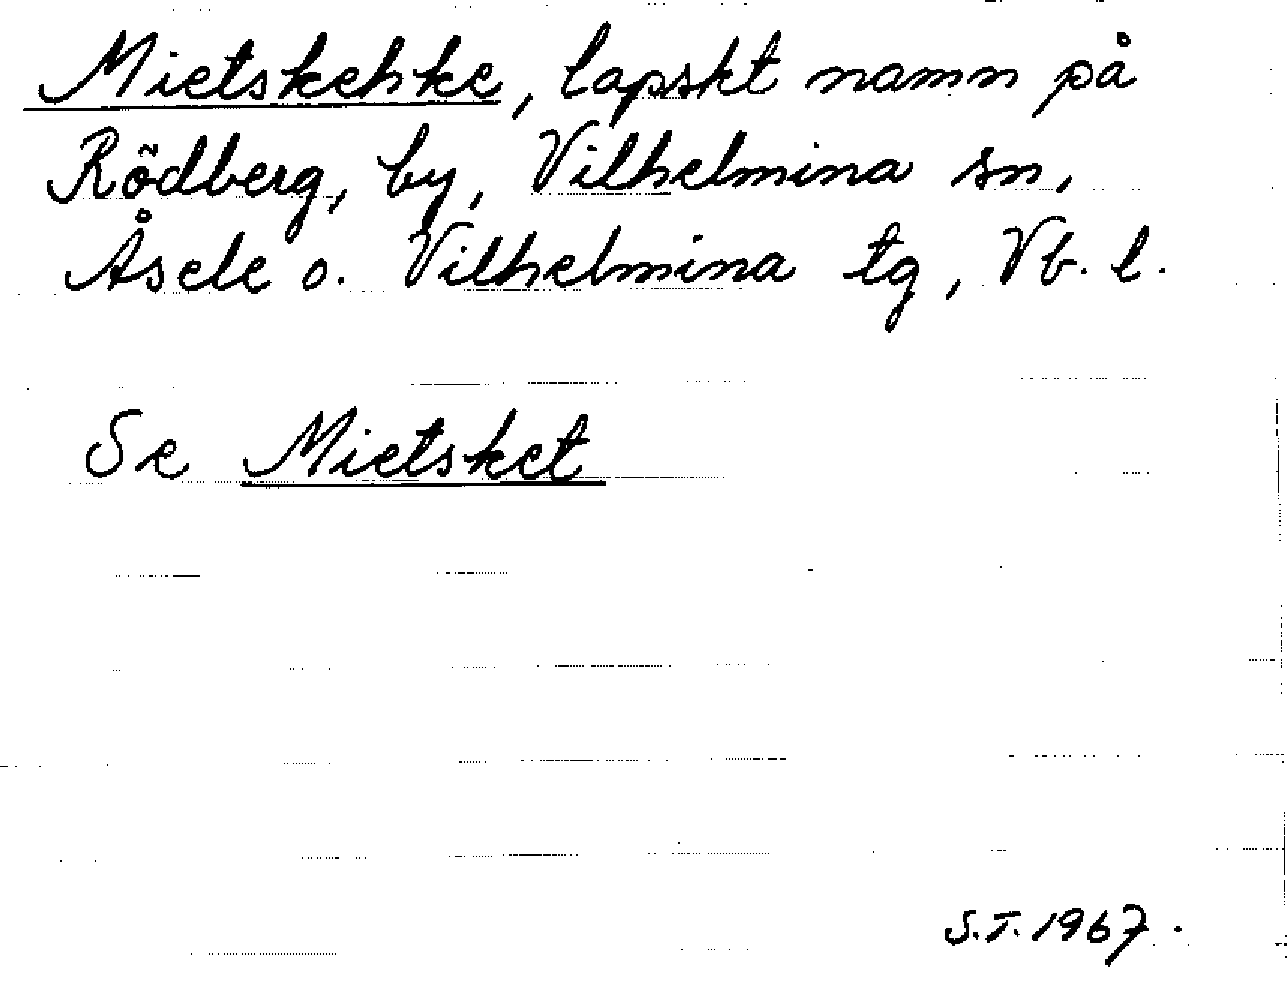 Mietskehke, lapskt namn på
Rödberg, by, Vilhelmina sn,
Åsele o. Vilhelmina tg, Vb. l.
Se Mietsket
S.T. 1967.